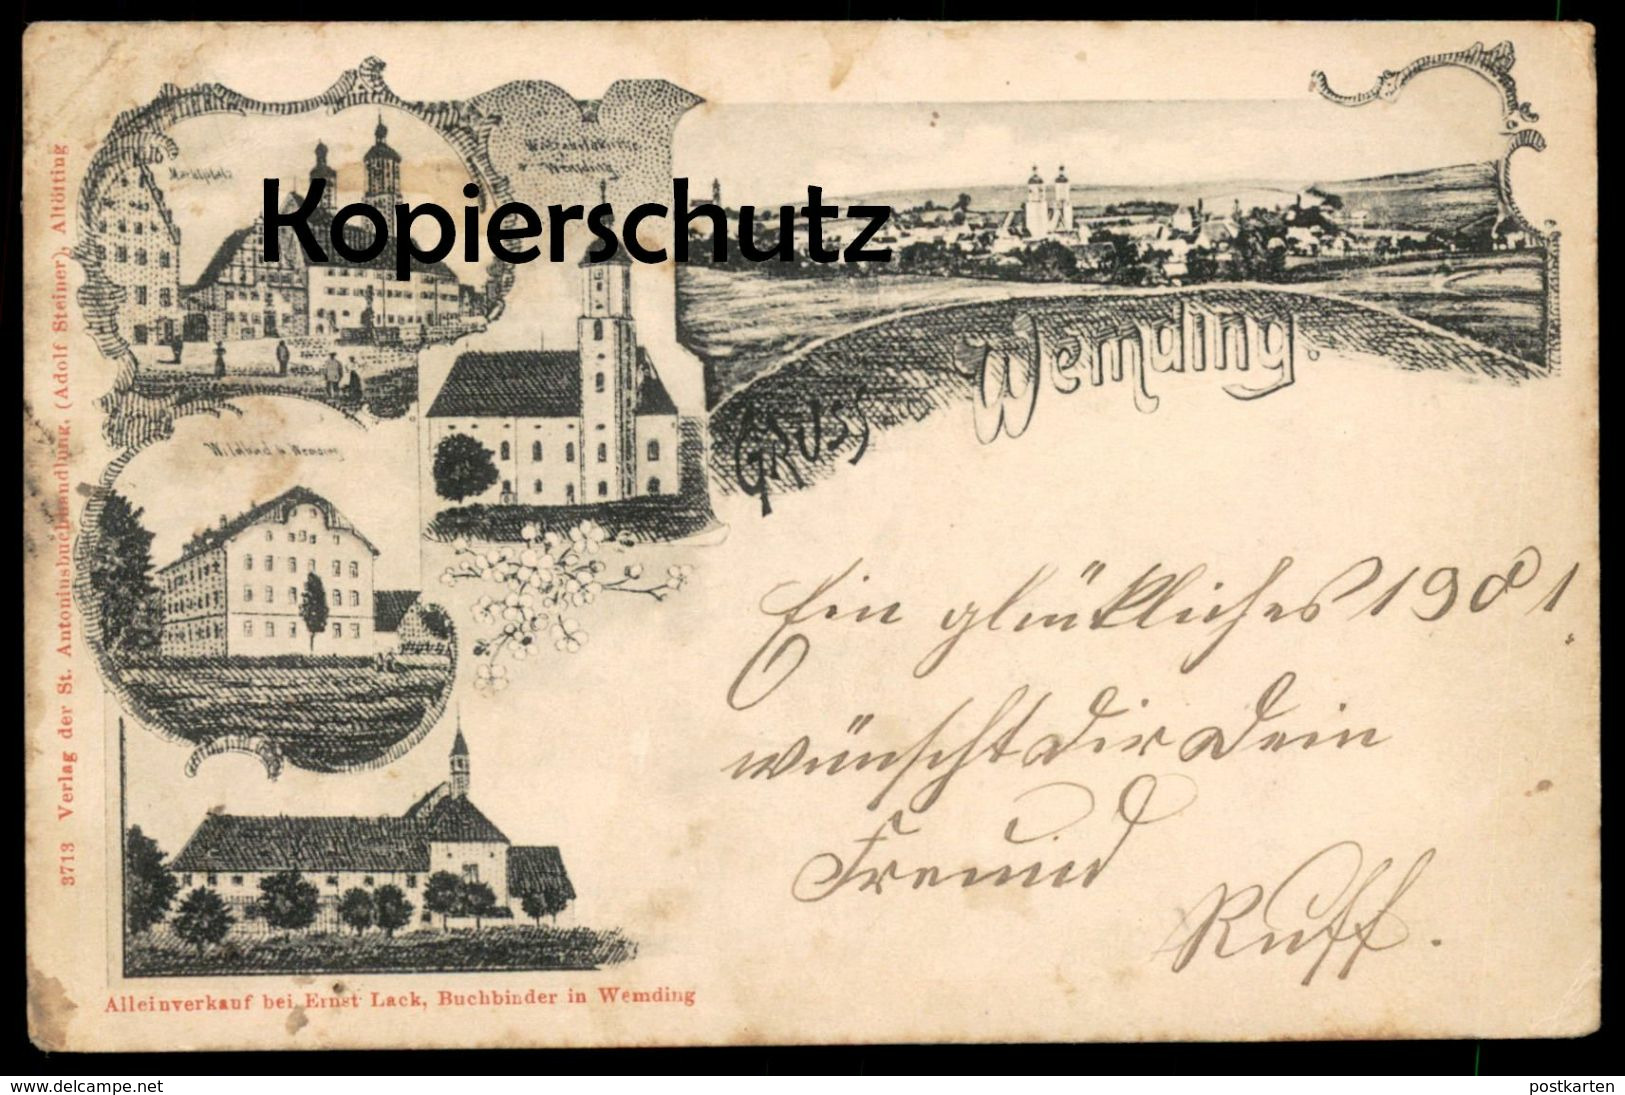 Marktplatz
Wallfahrtskirche
b. Wemding
Kopierschutz
Gruss
Wemding.
Wildbad b. Wemding
Ein glückliches 1901
wünscht Dir Dein
Freund
Ruff.
3713 Verlag der St. Antoniusbuchhandlung, (Adolf Steiner), Altötting
Alleinverkauf bei Ernst Lack, Buchbinder in Wemding
www.delcampe.net
postkarten